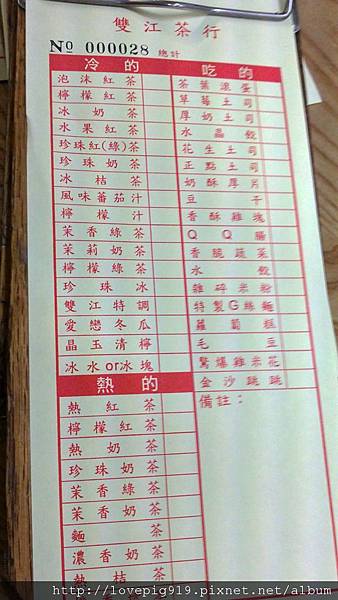 雙江茶行
No 000028 總計
冷的
泡沫紅茶
檸檬紅茶
冰奶茶
水果紅茶
珍珠紅(綠)茶
珍珠奶茶
冰桔茶
風味蕃茄汁
檸檬汁
茉香綠茶
茉莉奶茶
檸檬綠茶
珍珠冰
雙江特調
愛戀冬瓜
晶玉清檸
冰水or冰塊
熱的
熱紅茶
檸檬紅茶
熱奶茶
珍珠奶茶
茉香綠茶
茉香奶茶
麵茶
濃香奶茶
熱桔茶
吃的
茶葉滾蛋
草莓土司
厚奶土司
水晶餃
花生土司
正點土司
奶酥厚片
豆干
香酥雞塊
QQ腸
香脆蔬菜
水餃
雜碎米粉
特製G絲麵
蘿蔔糕
毛豆
驚爆雞米花
金沙跳跳
備註：
http://lovepig919.pixnet.net/album